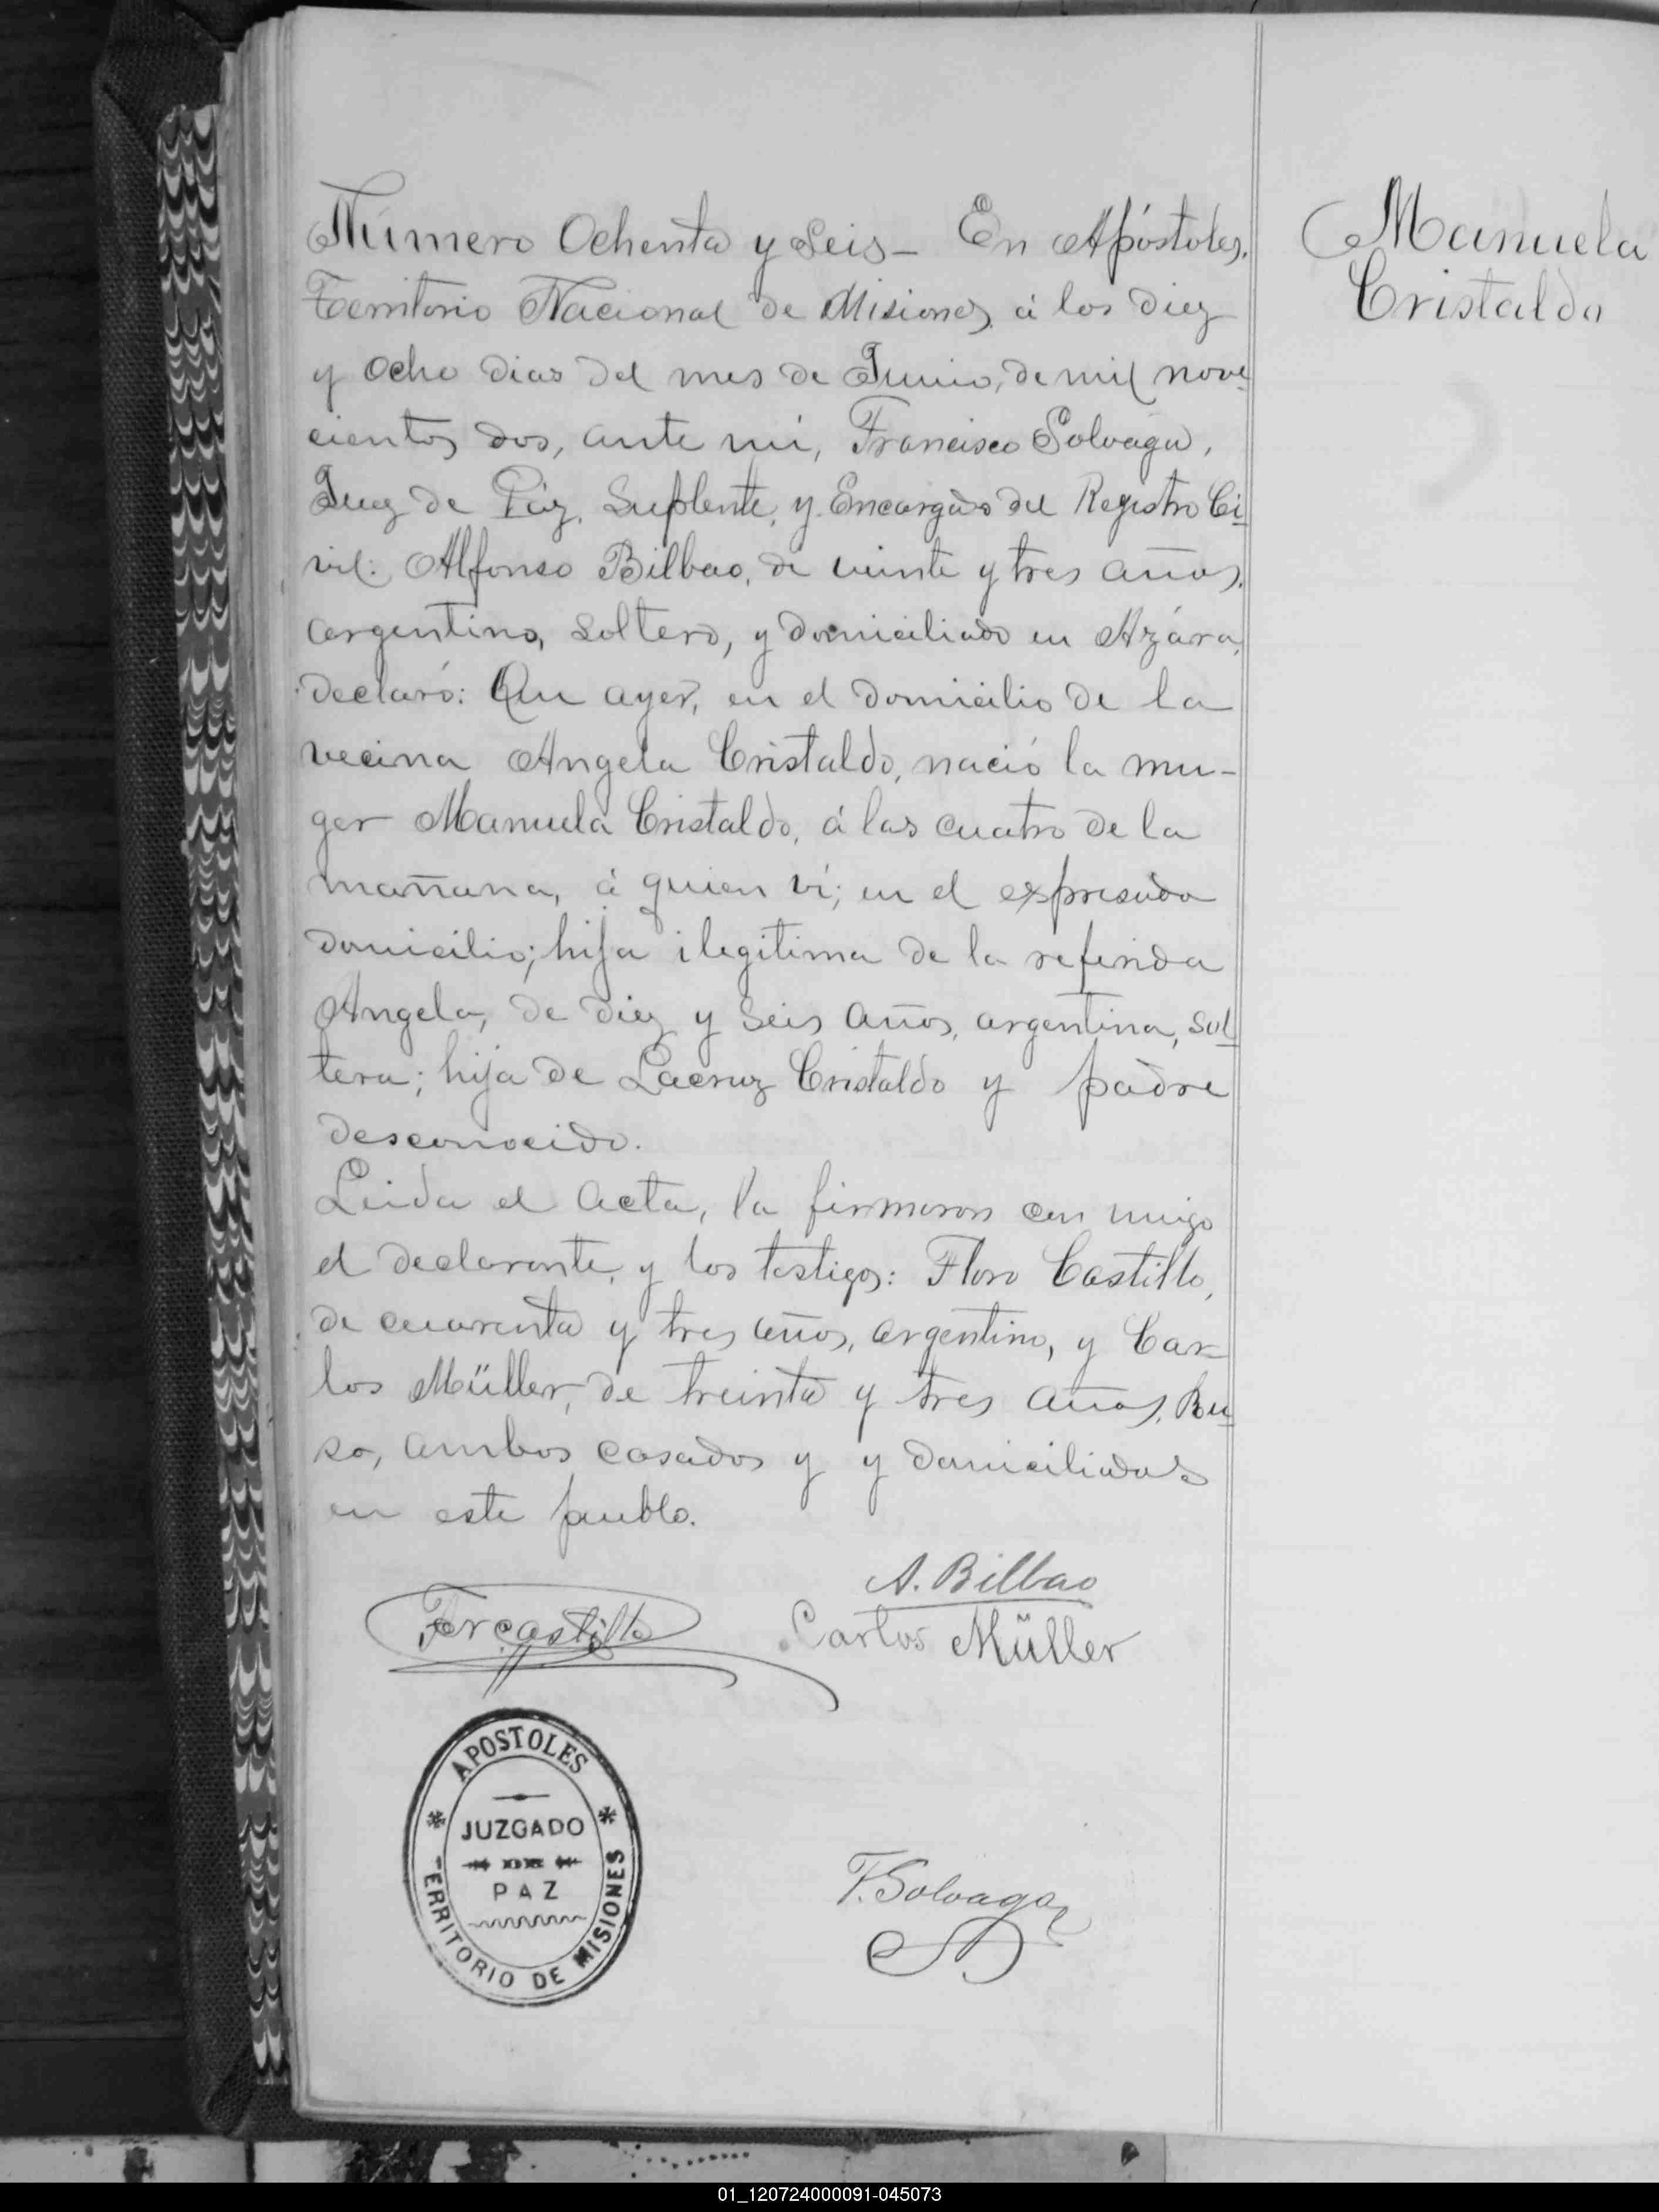 Número Ochenta y Seis – En Apóstoles,
Territorio Nacional de Misiones, á los diez
y ocho dias del mes de Junio, de mil nove
cientos dos, ante mí, Francisco Solvaga,
Juez de Páz, Suplente, y Encargado del Registro Ci
vil: Alfonso Bilbao, de veinte y tres años,
argentino, soltero, y domiciliado en Azára,
declaró: Que ayer, en el domicilio de la
vecina Angela Cristaldo, nació la mu-
ger Manuela Cristaldo, á las cuatro de la
mañana, á quien ví; en el expresado
domicilio; hija ilegitima de la referida
Angela, de diez y seis años, argentina, sol
tera; hija de Lacruz Cristaldo y padre
desconocido.
Leida el acta, la firmaron con migo
el declarante, y los testigos: Floro Castillo,
de cuarenta y tres años, argentino, y Car
los Müller, de treinta y tres años, Ru
so, ambos casados y y domiciliados
en este pueblo.
A. Bilbao
Carlos Müller
APOSTOLES
JUZGADO
DE
PAZ
TERRITORIO DE MISIONES
F. Solvaga
Manuela
Cristaldo
01_120724000091-045073